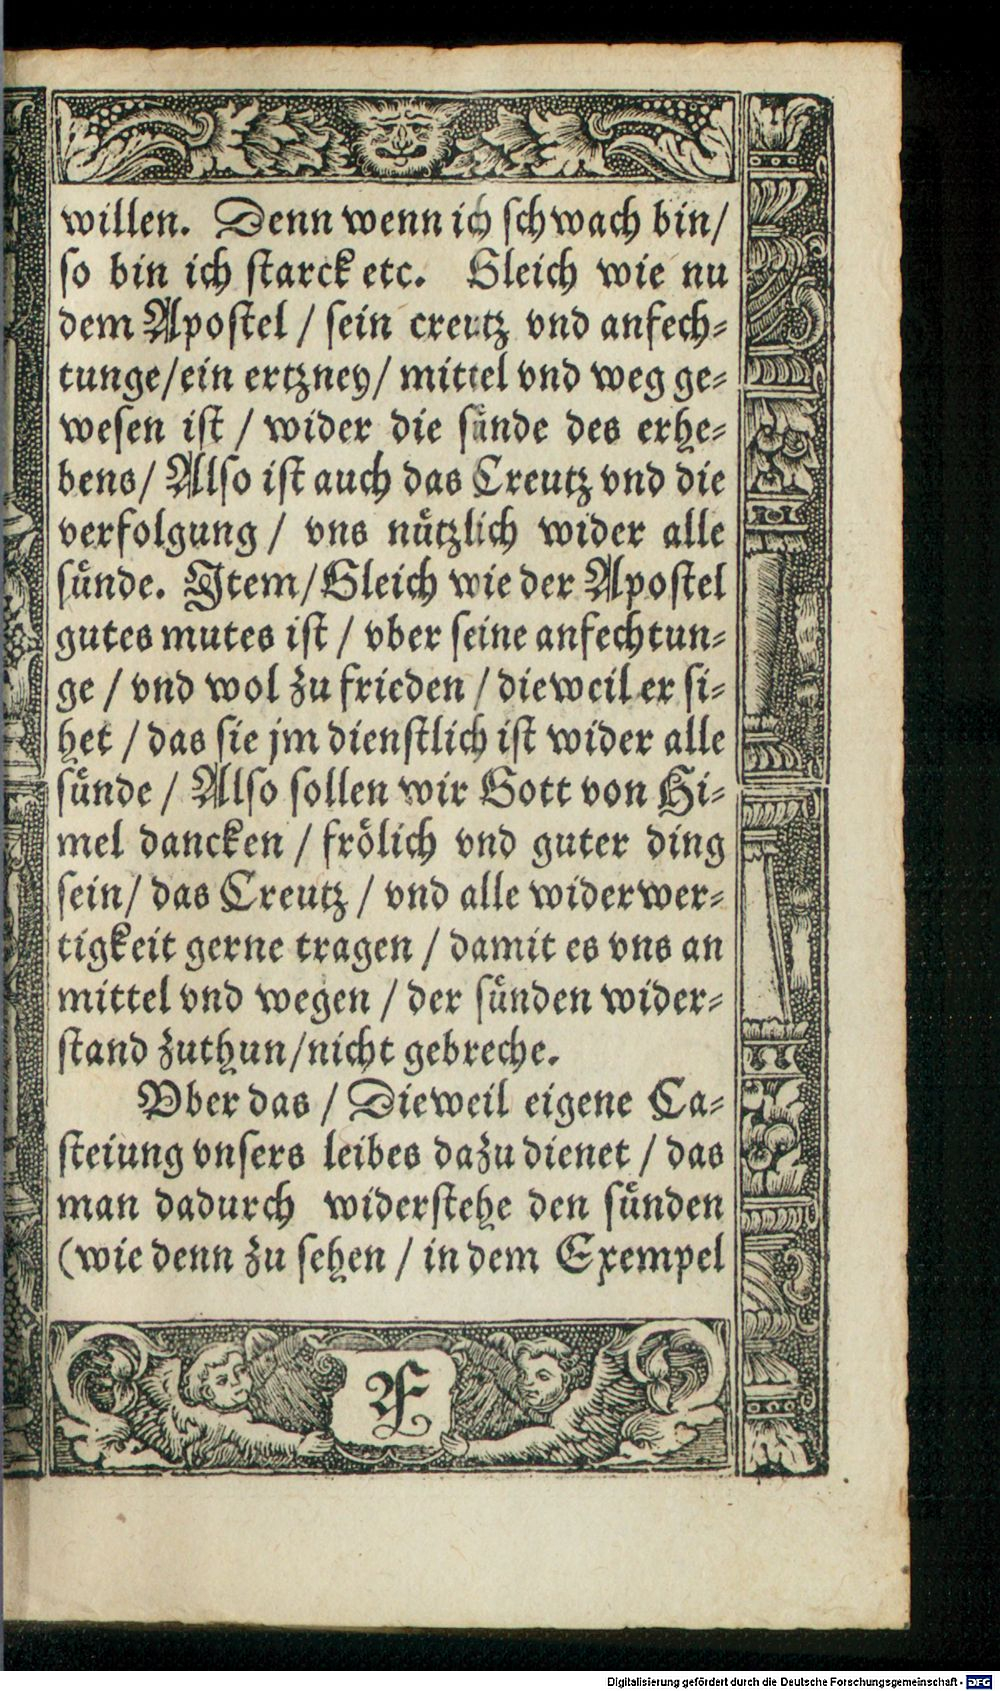 willen. Denn wenn ich schwach bin/
so bin ich starck etc. Gleich wie nu
dem Apostel / sein creutz vnd anfech⸗
tunge/ein ertzney/ mittel vnd weg ge⸗
wesen ist / wider die sünde des erhe⸗
bens/ Also ist auch das Creutz vnd die
verfolgung / vns nützlich wider alle
sünde. Item/Gleich wie der Apostel
gutes mutes ist / vber seine anfechtun⸗
ge / vnd wol zu frieden / dieweil er si⸗
het / das sie jm dienstlich ist wider alle
sünde / Also sollen wir Gott von Hi⸗
mel dancken / frölich vnd guter ding
sein/ das Creutz / vnd alle widerwer⸗
tigkeit gerne tragen / damit es vns an
mittel vnd wegen / der sünden wider⸗
stand zuthun/nicht gebreche.
Vber das / Dieweil eigene Ca⸗
steiung vnsers leibes dazu dienet / das
man dadurch widerstehe den sünden
(wie denn zu sehen / in dem Exempel
F
Digitalisierung gefördert durch die Deutsche Forschungsgemeinschaft - DFG